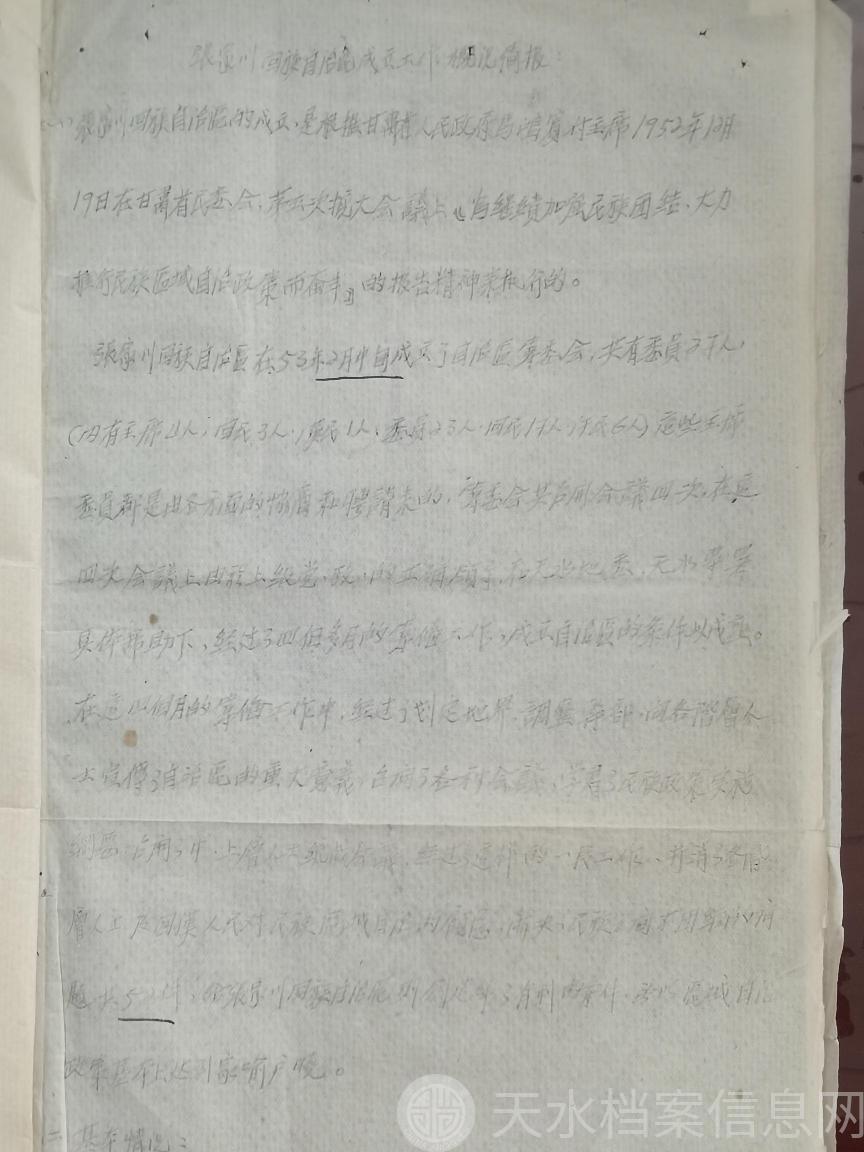 張家川回族自治區成立工作概況簡报：
(一)張家川回族自治區的成立，是根据甘肅省人民政府馬鴻賓付主席1952年12月
19日在甘肅省民委会，第五次擴大会議上《为继續加強民族団结、大力
推行民族區域自治政策而奋斗》的报告精神来执行的。
張家川回族自治區在53年2月中旬成立了自治區筹委会，共有委員27人，
(内有主席4人，回民3人，漢民1人，委員23人，回民17人，汗民6人)這些主席
委員都是由各方面的協商和聘請来的，筹委会共召開会議四次，在這
四次会議上由於上级党、政、的正确領导，和天水地委，天水專署
具体帮助下，经过了四個多月的筹俻工作，成立自治區的条件以成熟。
在這四個月的筹俻工作中，经过了划定地界，調整幹部，向各階層人
士宣傳了自治區的重大意義，召開了各种会議，學習了民族政策实施
綱要，召開了中、上層人士 会議，经过這样的一 工作，并消了各階
層人士及回漢人民对民族區域自治的顧慮，解决了民族之間不団结的问
題共52件，给張家川回族自治區 創造了有利的条件，所以區域自治
政策基本上达到家喻户晓。
二 基本情况：
天水档案信息网